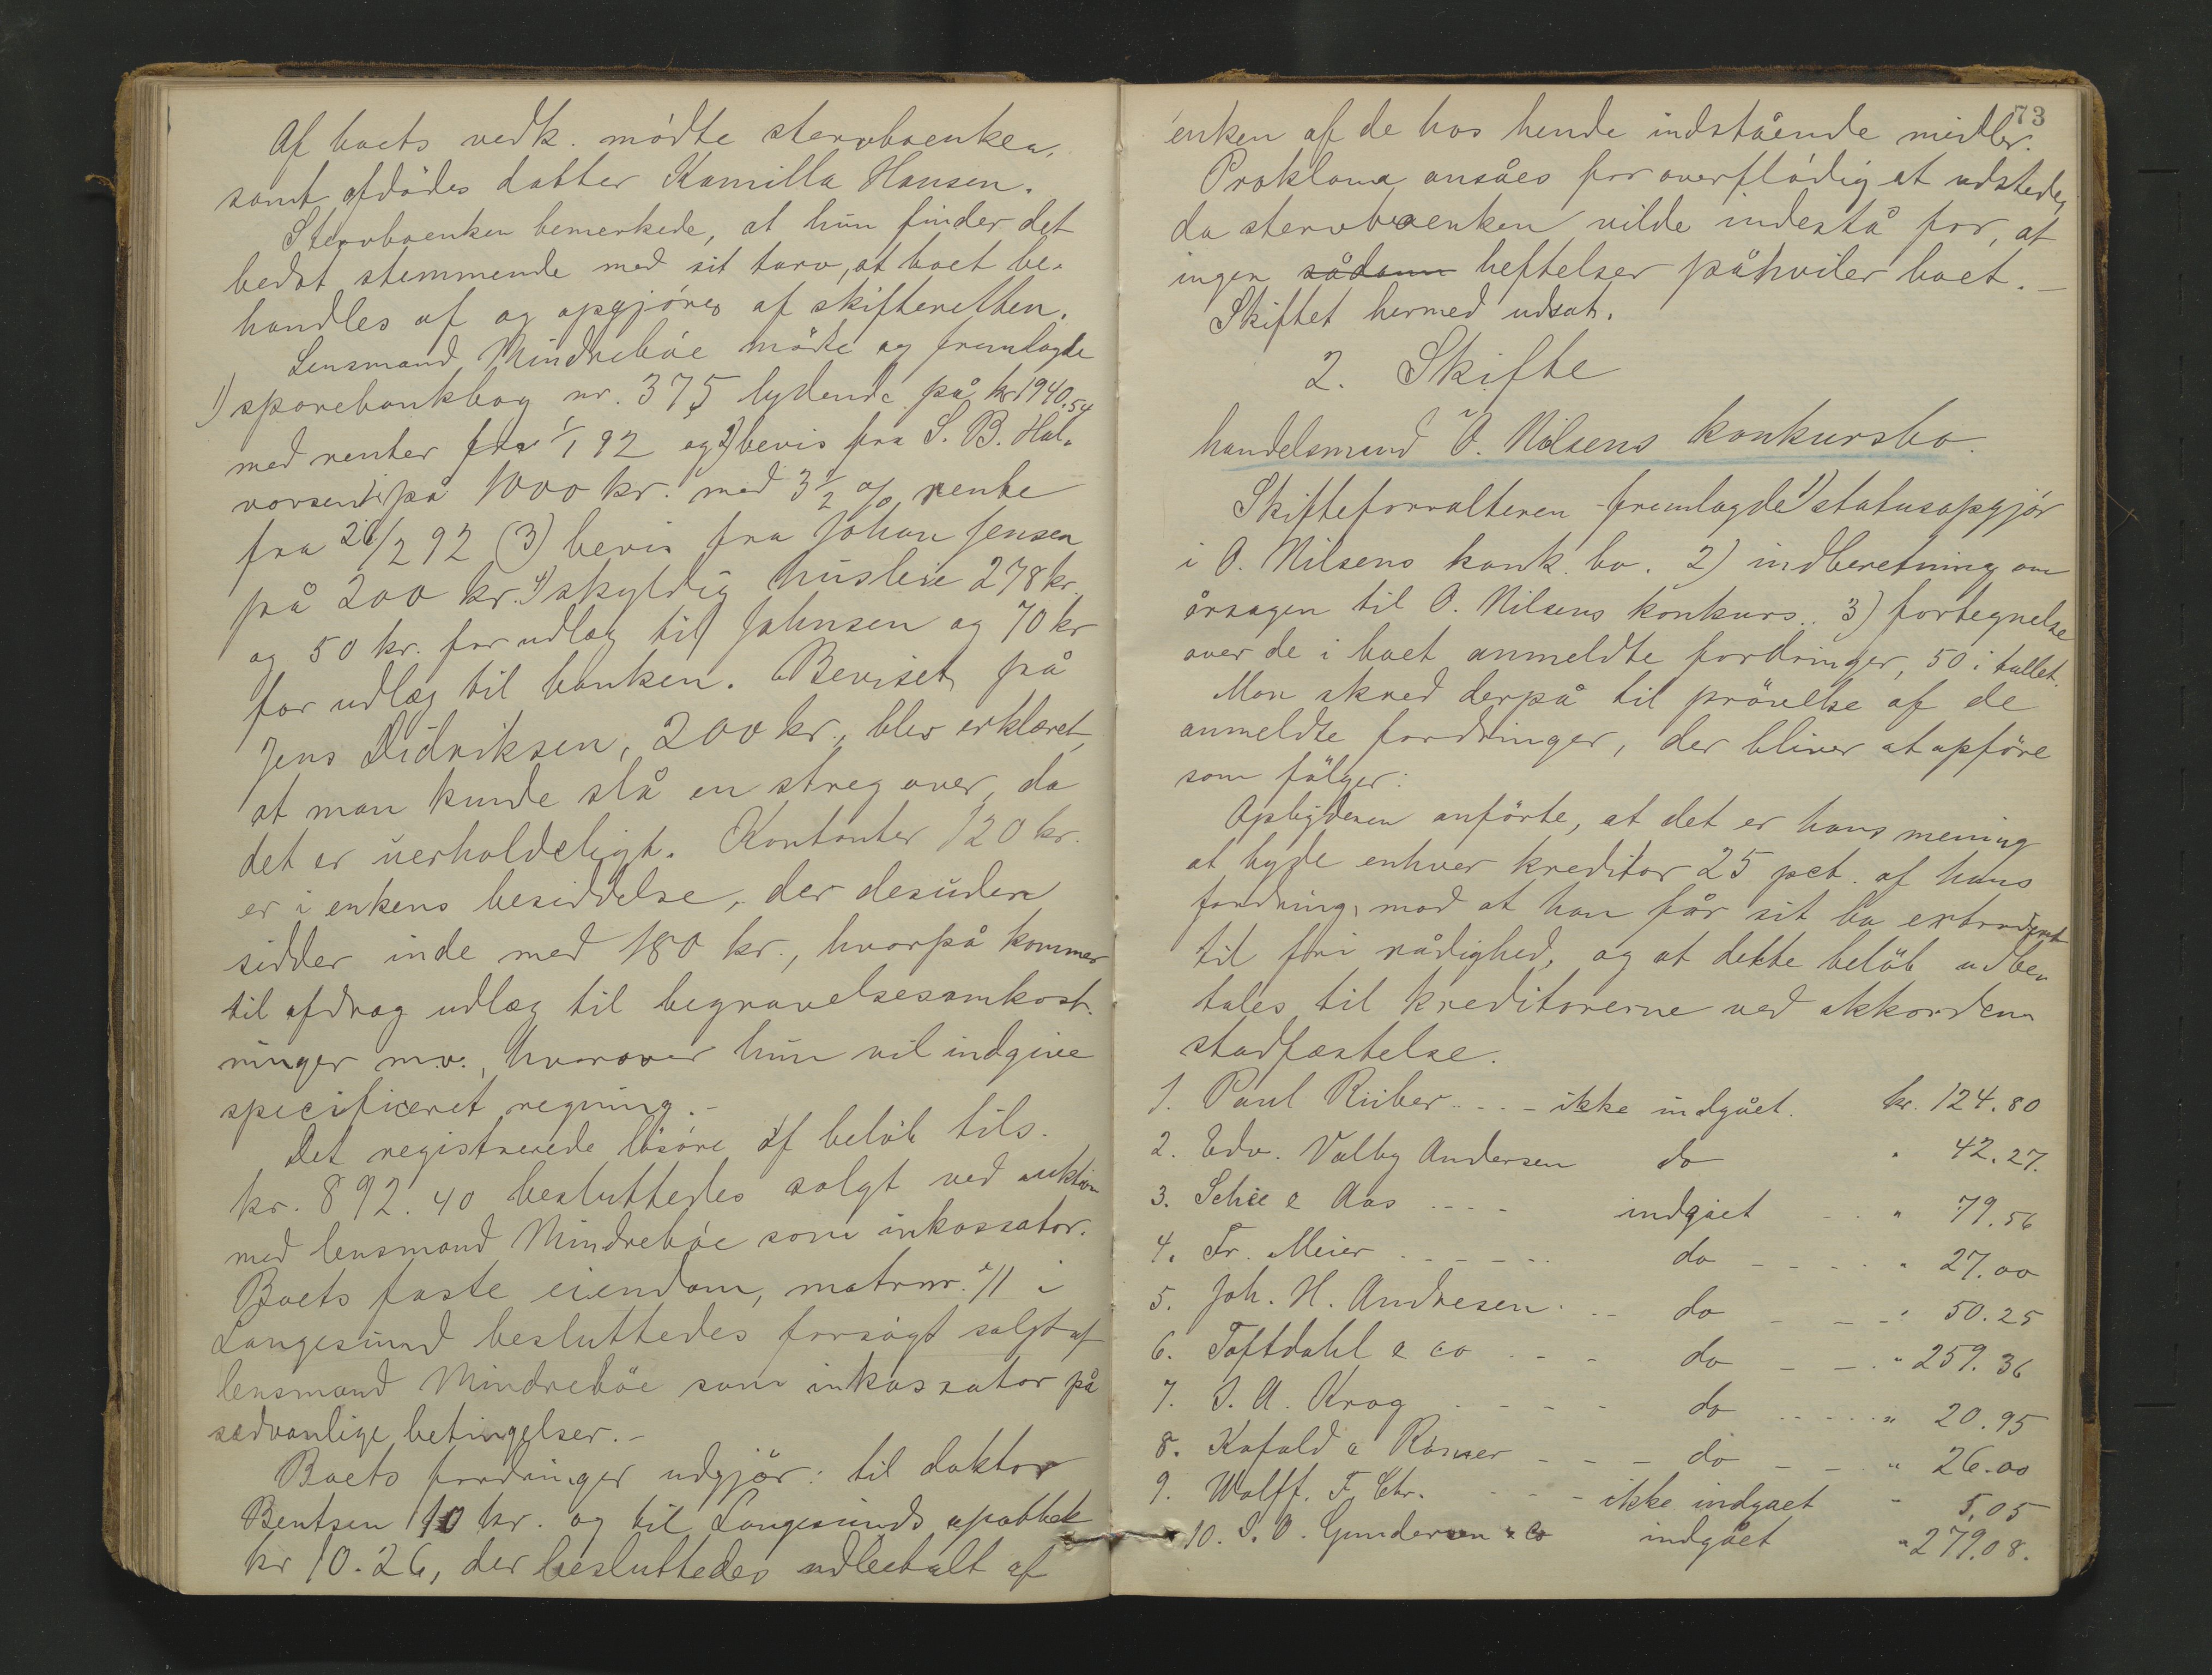 Af boets vedk. mödte stervboenken,
samt afdödes datter Kamilla Hansen.
Stervboenken bemerkede, at hun finder det
bedst stemmende med sit tarv, at boet be-
handles af og opgjöres af skifteretten.
Lensmand Mindreböe mödte og fremlagde
1) sparebankbog nr. 375 lydende på kr 1940.54
med renter fra 1/1 92 og 2) bevis fra S. B. Hal-
vorsen på 1000 kr. med 3 1/2 % rente
fra 26/2 92 (3) bevis fra Johan Jensen
på 200 kr. 4) skyldig husleie 278 kr.
og 50 kr. for udlæg til Johnsen og 70 kr
for udlæg til banken. Beviset på
Jens Didriksen, 200 kr., blev erklæret,
at man kunde slå en streg over, da
det er uerholdeligt. Kontanter 120 kr.
er i enkens besiddelse, der desuden
sidder inde med 180 kr., hvorpå kommer
til afdrag udlæg til begravelsesomkost-
ninger m.v., hvorover hun vil indgive
specificeret regning.-
Det registrerede lösöre af belöb tils.
kr. 892.40 besluttedes solgt ved auktion
med lensmand Mindreböe som inkassator.
Boets faste eiendom, matrnr. 71 i
Langesund besluttedes forsögt solgt af
lensmand Mindreböe som inkassator på
sædvanlige betingelser.-
Boets fordringer udgjör: til doktor
Bentsen 10 kr. og til Langesunds apothek
kr 10.26, der besluttedes udbetalt af
73
enken af de hos hende indstående midler.
Proklama ansåes for overflödig at udstede,
da stervboenken vilde indestå for, at
ingen sådann heftelser påhviler boet.-
Skiftet hermed udsat.
2. Skifte
handelsmand O. Nilsens konkursbo.
Skifteforvalteren fremlagde 1) statusopgjör
i O. Nilsens konk. bo. 2) indberetning om
årsagen til O. Nilsens konkurs.. 3) fortegnelse
over de i boet anmeldte fordringer, 50 i tallet.
Man skred derpå til prövelse af de
anmeldte fordringer, der bliver at opföre
som fölger:
Opbyderen anförte, at det er hans mening
at byde enhver kreditor 25 pct. af hans
fordring, mod at han får sit bo extraderet
til fri rådighed, og at dette belöb udbe-
tales til kreditorerne ved akkordens
stadfæstelse.
1. Paul Rieber .. - - ikke indgået. kr. 124.80
2. Edv. Valby Andersen do " 42.27.
3. Schie & Aas - - - - indgået - - " 79.56
4. Fr. Meier - - - - - do - - - - " 27.00
5. Joh. H. Andresen. - - do - - - " 50.25
6. Toftdahl & co - - - do - - " 259.36
7. S. A. Krag - - - - do - - - - " 20.95
8. Kafald & - - - do - - " 26.00
9. Wolff, F. Chr. - - - ikke indgaet - 5,05
10. S. O. Gundersen & Co indgået " 279.08.